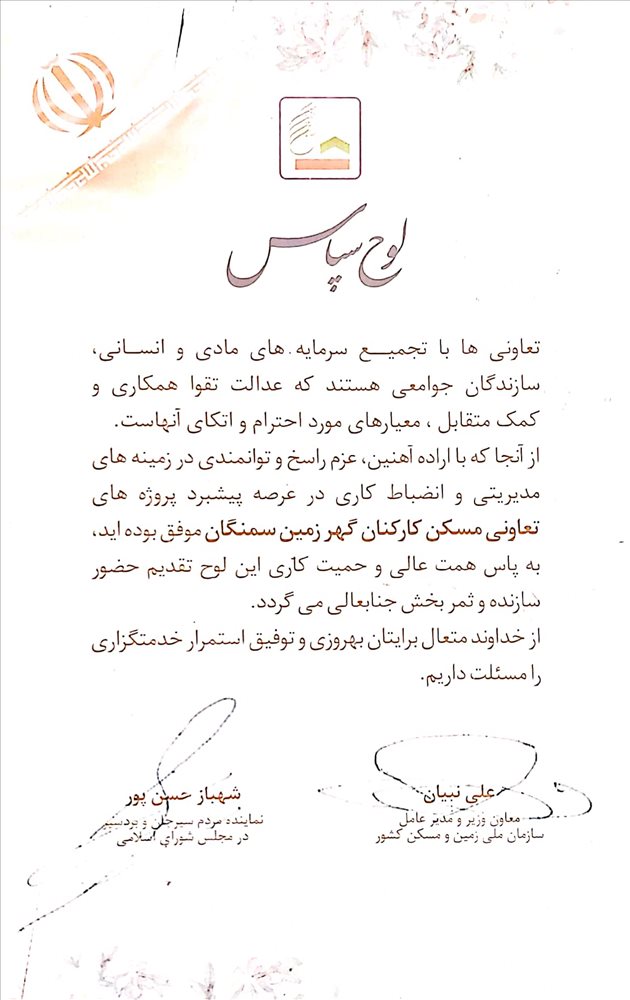 لوح سپاس
تعاونی ها با تجمیع سرمایه های مادی و انسانی،
سازندگان جوامعی هستند که عدالت تقوا همکاری و
کمک متقابل ، معیارهای مورد احترام و اتکای آنهاست.
از آنجا که با اراده آهنین، عزم راسخ و توانمندی در زمینه های
مدیریتی و انضباط کاری در عرصه پیشبرد پروژه های
تعاونی مسکن کارکنان گهر زمین سمنگان موفق بوده اید،
به پاس همت عالی و حمیت کاری این لوح تقدیم حضور
سازنده و ثمر بخش جنابعالی می گردد.
از خداوند متعال برایتان بهروزی و توفیق استمرار خدمتگزاری
را مسئلت داریم.
علی نبیان
معاون وزیر و مدیر عامل
سازمان ملی زمین و مسکن کشور
شهباز حسن پور
نماینده مردم سیرجان و بردسیر
در مجلس شورای اسلامی